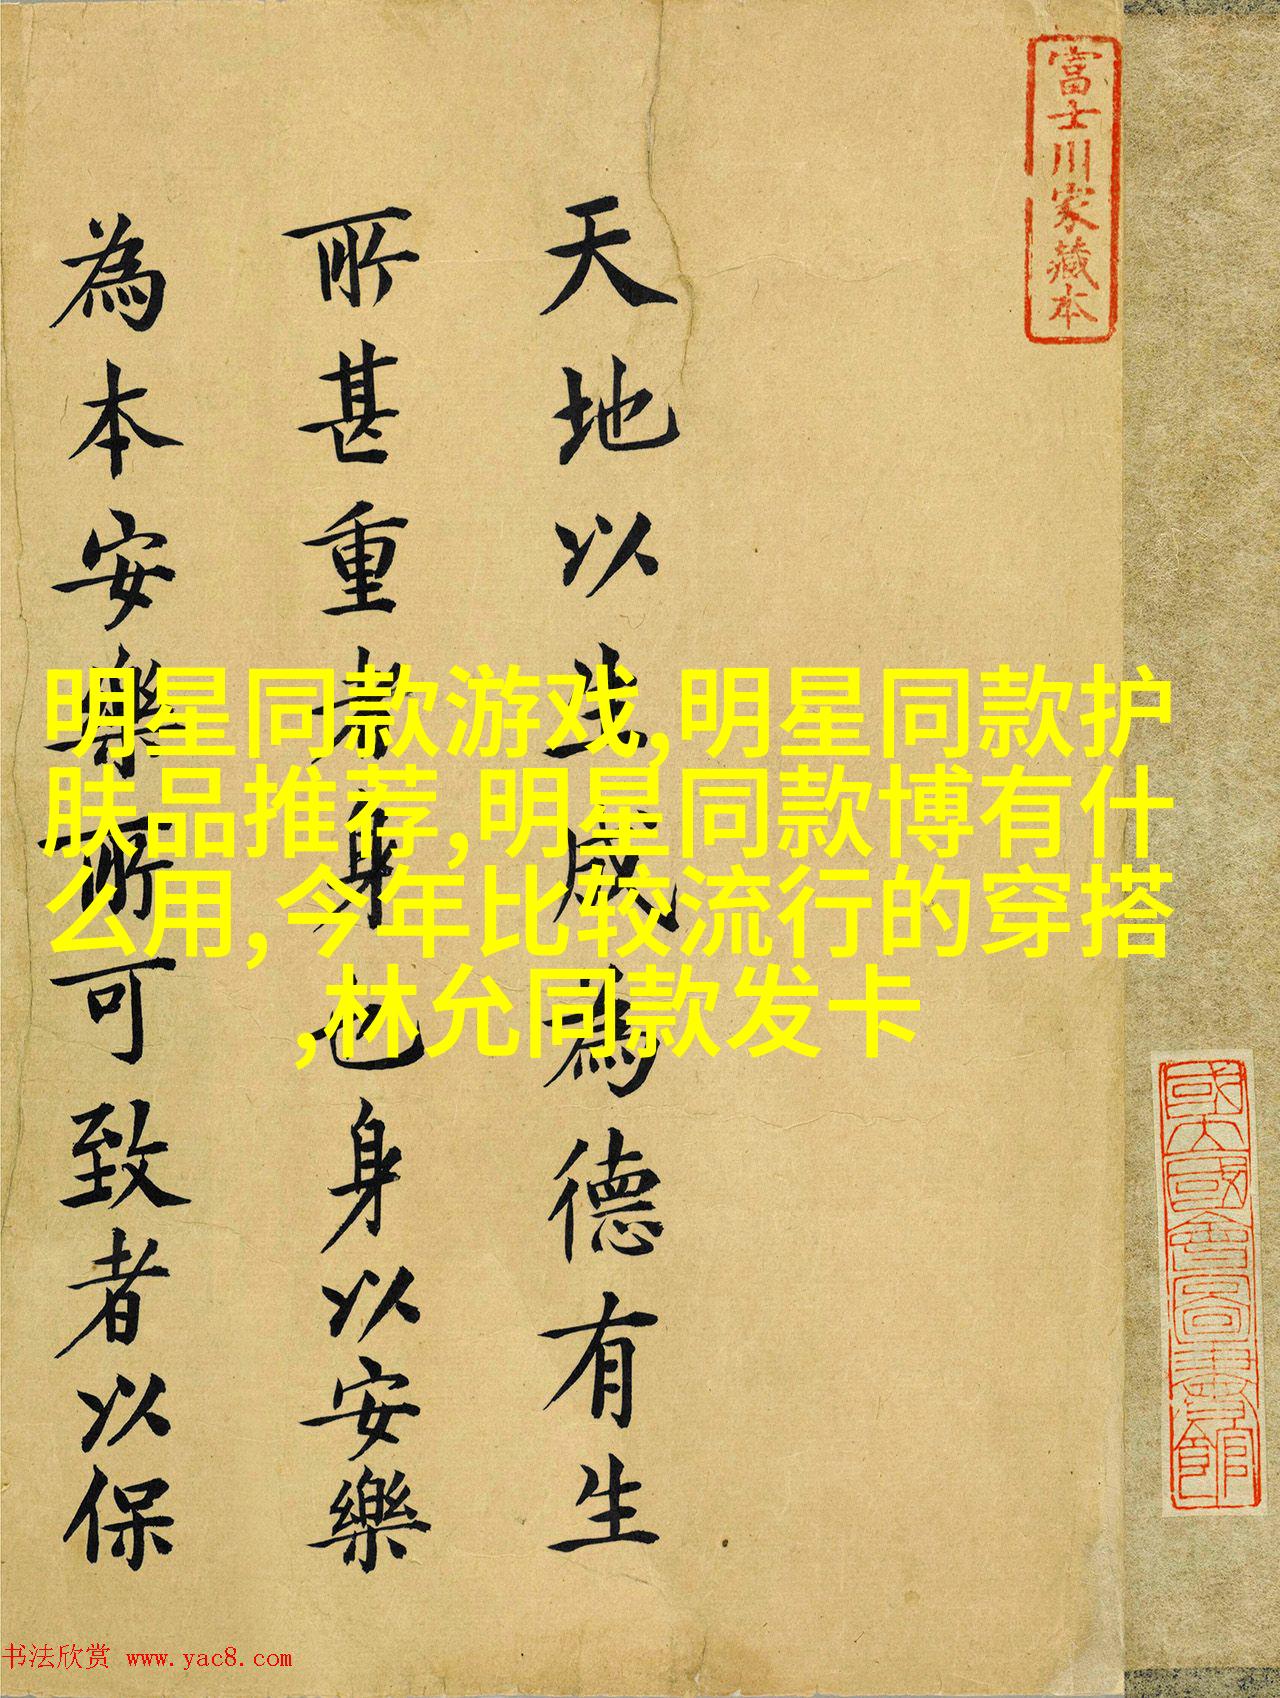 富士川家藏本
國立國會圖書館
天地以生成為德有生
所甚重者身也身以安樂
為本安樂所可致者以保
明星同款游戏,明星同款护
肤品推荐,明星同款博有什
么用,今年比较流行的穿搭
,林允同款发卡
书法欣赏 www.yac8.com